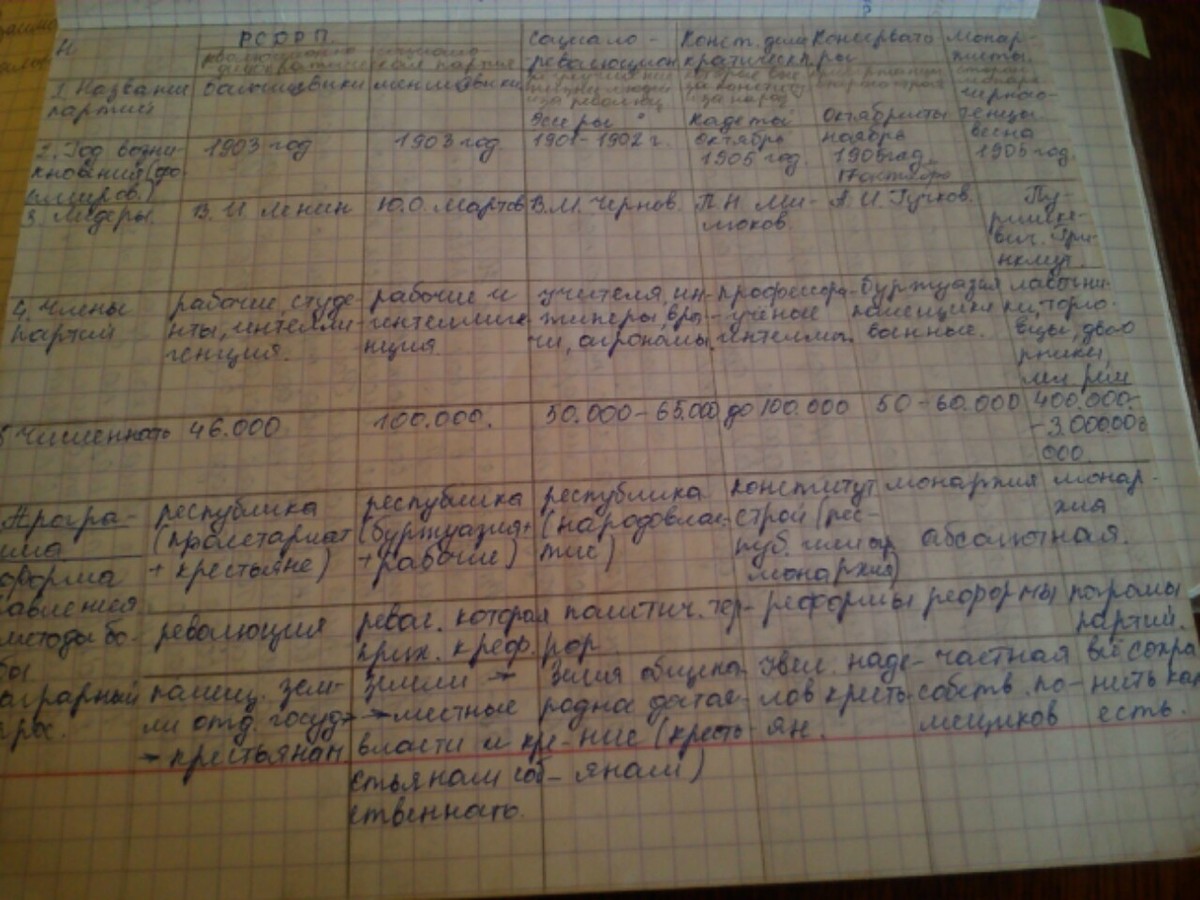 РСДРП.
Социало - революцион
Конст. дем кратическ
Консервато ры
Монар- хисты.
1. Название партий
большевики
меньшевики
Эсеры
Кадеты
Октябристы
черносо- тенцы.
2. Год возни- кновения (фо- рмиров.)
1903 год
1903 год
1901-1902 г.
октябрь 1905 год.
ноябрь 1905 год. 17 октябрь
весна 1905 год.
3. Лидеры.
В. И Ленин
Ю.О. Мартов
В.М. Чернов.
П Н Ми- люков
А. И Гучков.
Пу- ришке- вич. Гри- нгмут.
4. Члены партий
рабочие, студе- нты, интелли- генция.
рабочие и интеллиге нция.
учителя, ин- женеры, вра- чи, агрономы.
профессора - учёные интеллиг.
буржуазия помещики военные.
лавочни- ки, торго- вцы, дво- рники,
5 Численность
46.000
100.000.
50.000-65.000
до 100.000
50-60.000
400.000- -3.000.000
000
Програ- мма
форма
республика (пролетариат + крестьяне)
республика (буржуазия+ + рабочие)
республика (народовлас- тие)
конститут строй (рес- публ. или монархия)
монархия
монар- хия
абсолютная.
методы бо- бы
революция
револ. которая прих. к реф.
политич. тер- рор.
реформы
реформы
погромы партий.
аграрный
помещ. зем- ли отд. госуд → крестьянам
земли → →местные власти и кре- стьянам соб- ственность.
земля общена- родное достоя- ние (кресть- янам)
увел. наде- лов кресть- ян.
частная собств. по- мещиков
всё сохра- нить как есть.